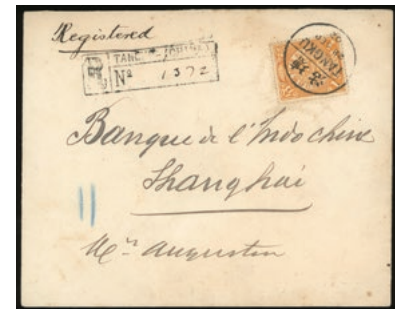 Registered
TANGKU (CHINA)
R No 1372
TANGKU
Banque de l'Indo chine
Shanghai
Mr Augustin